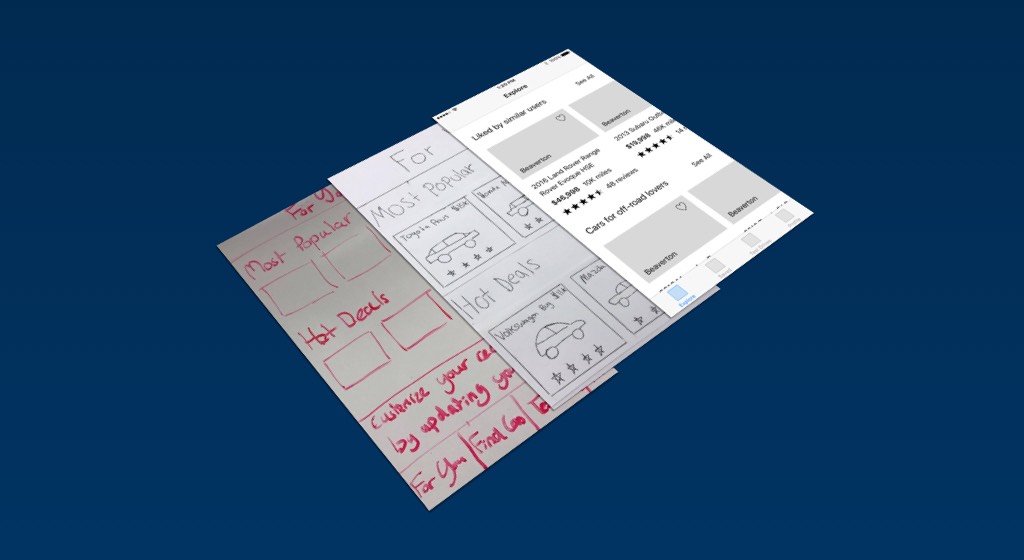 For
Most Popular
Hot Deals
Customize your
by updating
For You
Find
For
Most Popular
Toyota $15k
Hot Deals
Volkswagen Bug $15k
Mazda
100%
Explore
Liked by similar users
See All
Beaverton
Beaverton
2016 Land Rover Range
Rover Evoque HSE
$46,998 10K miles
48 reviews
2013 Subaru
$19,998 46K
14
Cars for off-road lovers
See All
Beaverton
Beaverton
Explore